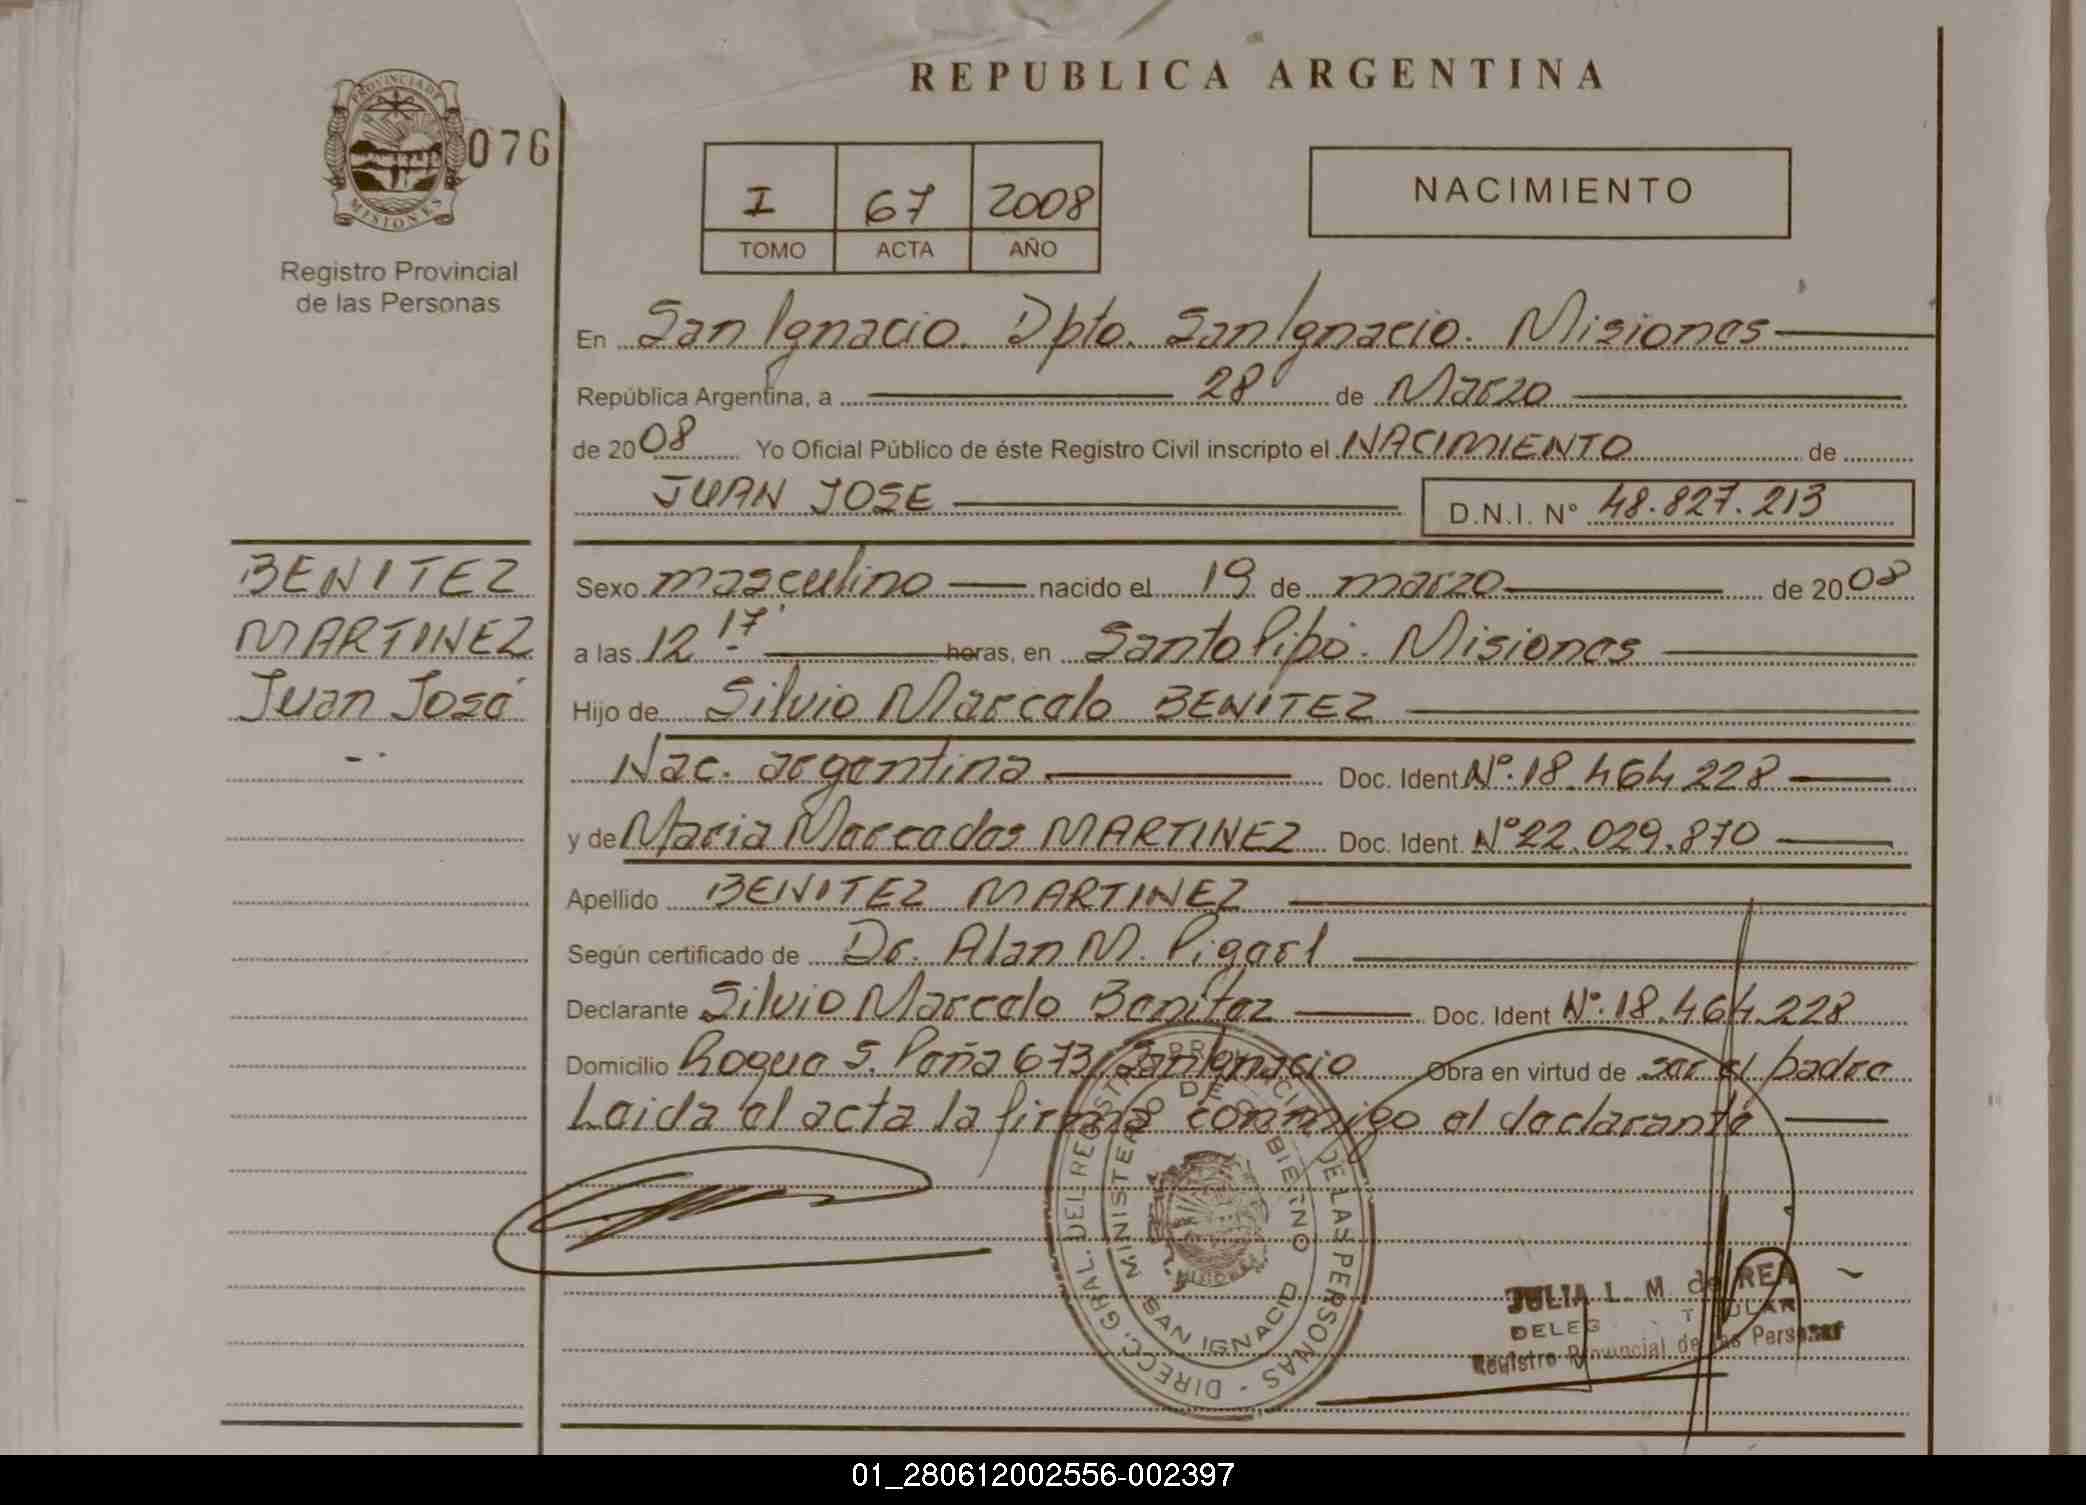 REPUBLICA ARGENTINA
PROVINCIA DE
MISIONES
076
Registro Provincial
de las Personas
I 67 2008
TOMO ACTA AÑO
NACIMIENTO
En San Ignacio. Dpto. San Ignacio. Misiones
República Argentina, a 28 de Marzo
de 2008 Yo Oficial Público de éste Registro Civil inscripto el NACIMIENTO de
JUAN JOSE D.N.I. N° 48.827.213
BENITEZ
MARTINEZ
Juan José
Sexo masculino nacido el 19 de marzo de 2008
a las 12 17' horas, en Santo Pipó. Misiones
Hijo de Silvio Marcelo BENITEZ
Nac. argentina Doc. Ident Nº.18.464.228
y de Maria Mercedes MARTINEZ Doc. Ident. Nº22.029.870
Apellido BENITEZ MARTINEZ
Según certificado de Dr. Alan M.
Declarante Silvio Marcelo Benitez Doc. Ident Nº.18.464.228
Domicilio Roque S. Peña 673 San Ignacio Obra en virtud de ser el padre
Leida el acta la firma conmigo el declarante
DIRECC. GRAL. DEL REGISTRO PROVINCIAL DE LAS PERSONAS
MINISTERIO DE GOBIERNO
MISIONES
SAN IGNACIO
JULIA L. M. de
Registro Provincial de las Personas
01_280612002556-002397